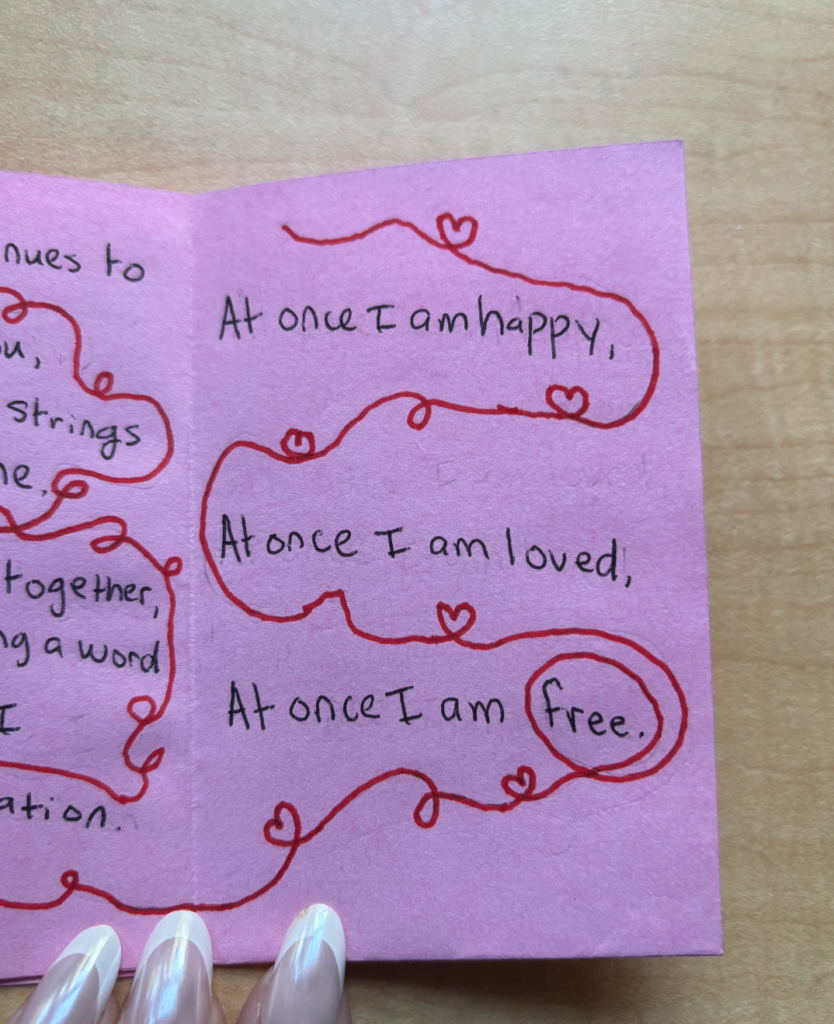 nues to
ou,
strings
me,
together,
ng a word
I
ation.
At once I am happy,
At once I am loved,
At once I am free.